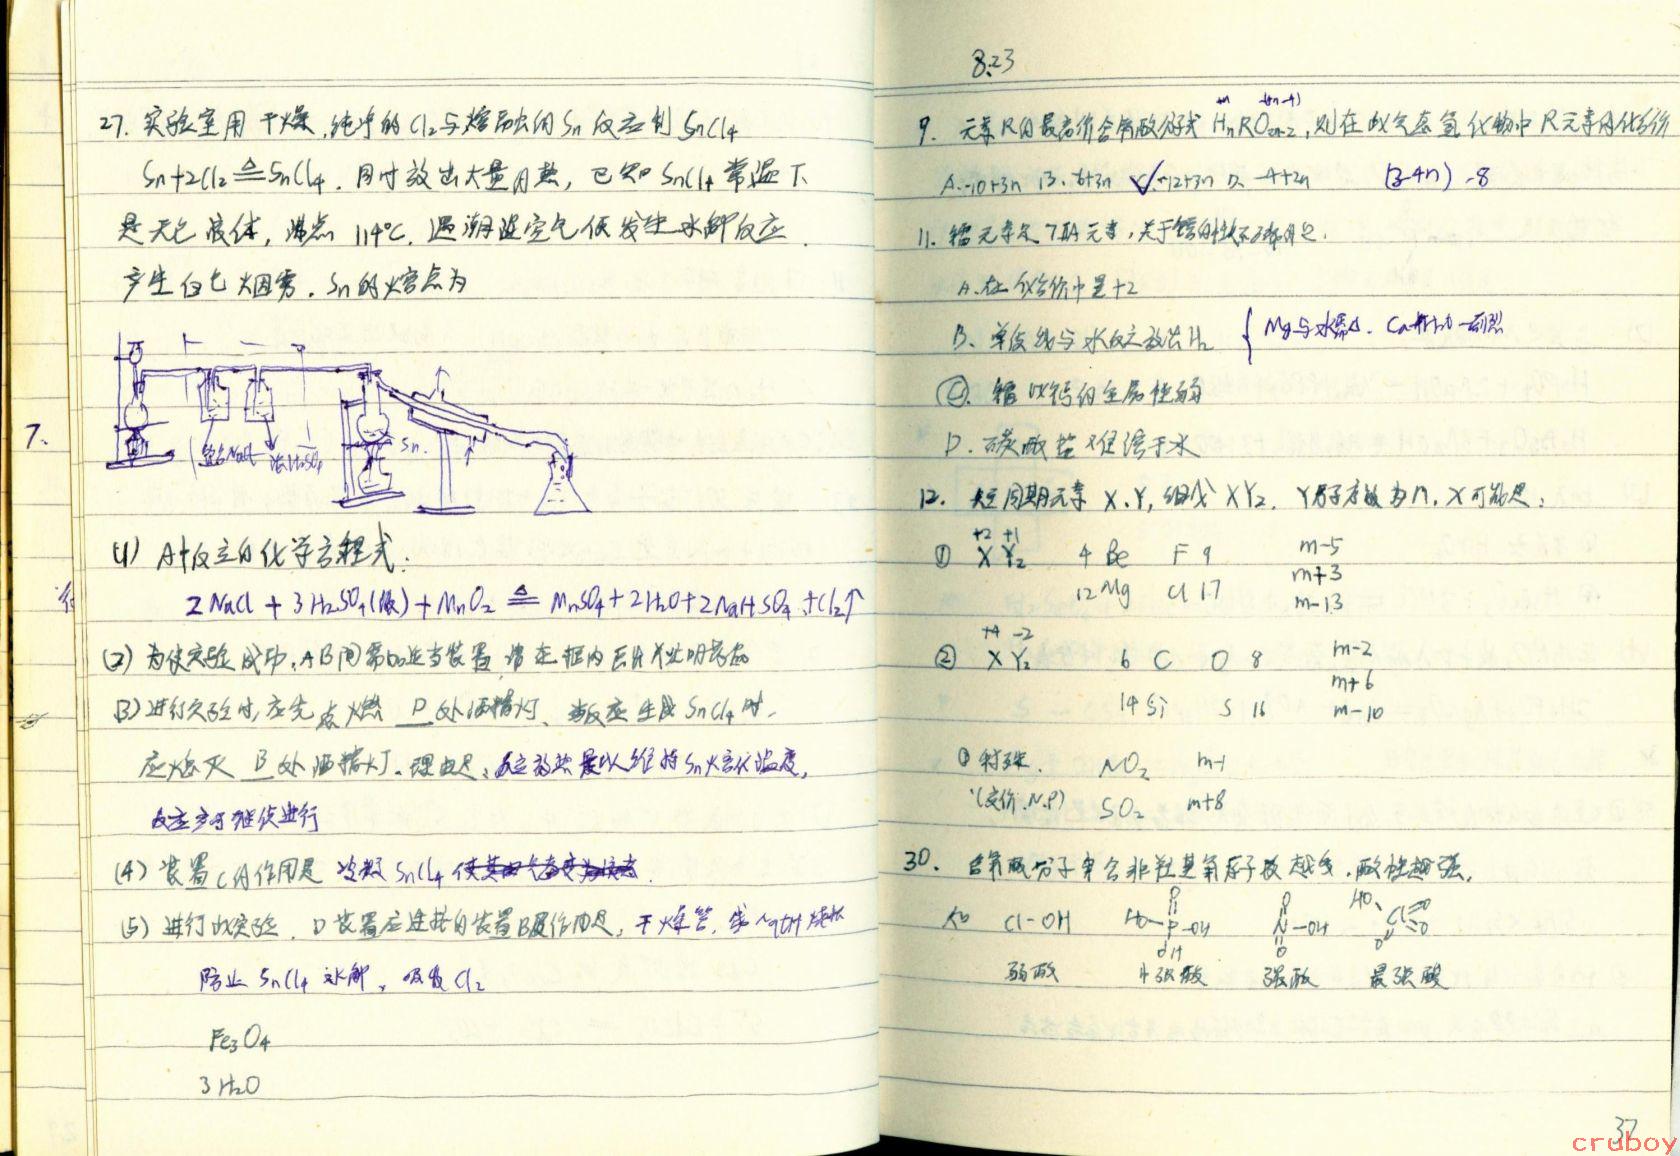 27. 实验室用干燥,纯净的Cl₂与熔融的Sn反应制SnCl₄
Sn+2Cl₂ ≜ SnCl₄. 同时放出大量的热, 已知SnCl₄常温下
是无色液体, 沸点 114℃. 遇潮湿空气便发生水解反应.
产生白色烟雾. Sn的熔点为
7.
饱和NaCl 浓H₂SO₄ Sn.
(1) A中反应的化学方程式:
2NaCl + 3H₂SO₄(浓) + MnO₂ ≜ MnSO₄+2H₂O+2NaHSO₄+Cl₂↑
(2) 为使实验成功, AB间需加适当装置, 请在框内画出并注明药品
(3) 进行实验时, 应先点燃 D 处酒精灯、当反应生成SnCl₄时,
应熄灭 B 处酒精灯. 理由是: 反应放热足以维持Sn熔化温度,
反应可继续进行
(4) 装置C的作用是 冷凝SnCl₄
(5) 进行此实验. D装置应连接的装置及作用是, 干燥管,
防止SnCl₄水解, 吸收Cl₂
Fe₃O₄
3H₂O
8.23
9. 元素R的最高价含氧酸分子式 HₙRO₂ₙ₋₂, 则在此气态氢化物中R元素的化合价
A. -10+3n B. 6+3n ✓C. -12+3n D. -4+2n (3-4n) -8
11. 镭元素是7ⅡA元素, 关于镭的性质不正确的是.
A. 在化合价中是+2
B. 单质能与水反应放出H₂ { Mg与水需△. Ca
Ⓒ. 镭比钙的金属性弱
D. 碳酸盐难溶于水
12. 短周期元素 X.Y, 组成 XY₂. Y原子序数为m, X可能是:
+2 +1
① X Y₂ 4 Be F 9 m-5
m+3
12 Mg Cl 17 m-13
+4 -2
② X Y₂ 6 C O 8 m-2
m+6
14 Si S 16 m-10
特殊. NO₂ m-1
(变价.N.P) SO₂ m+8
30. 含氧酸分子中含非羟基氧原子数越多, 酸性越强.
如 Cl-OH HO-P-OH OH O N-OH O HO Cl O O O
弱酸 中强酸 强酸 最强酸
37
cruboy